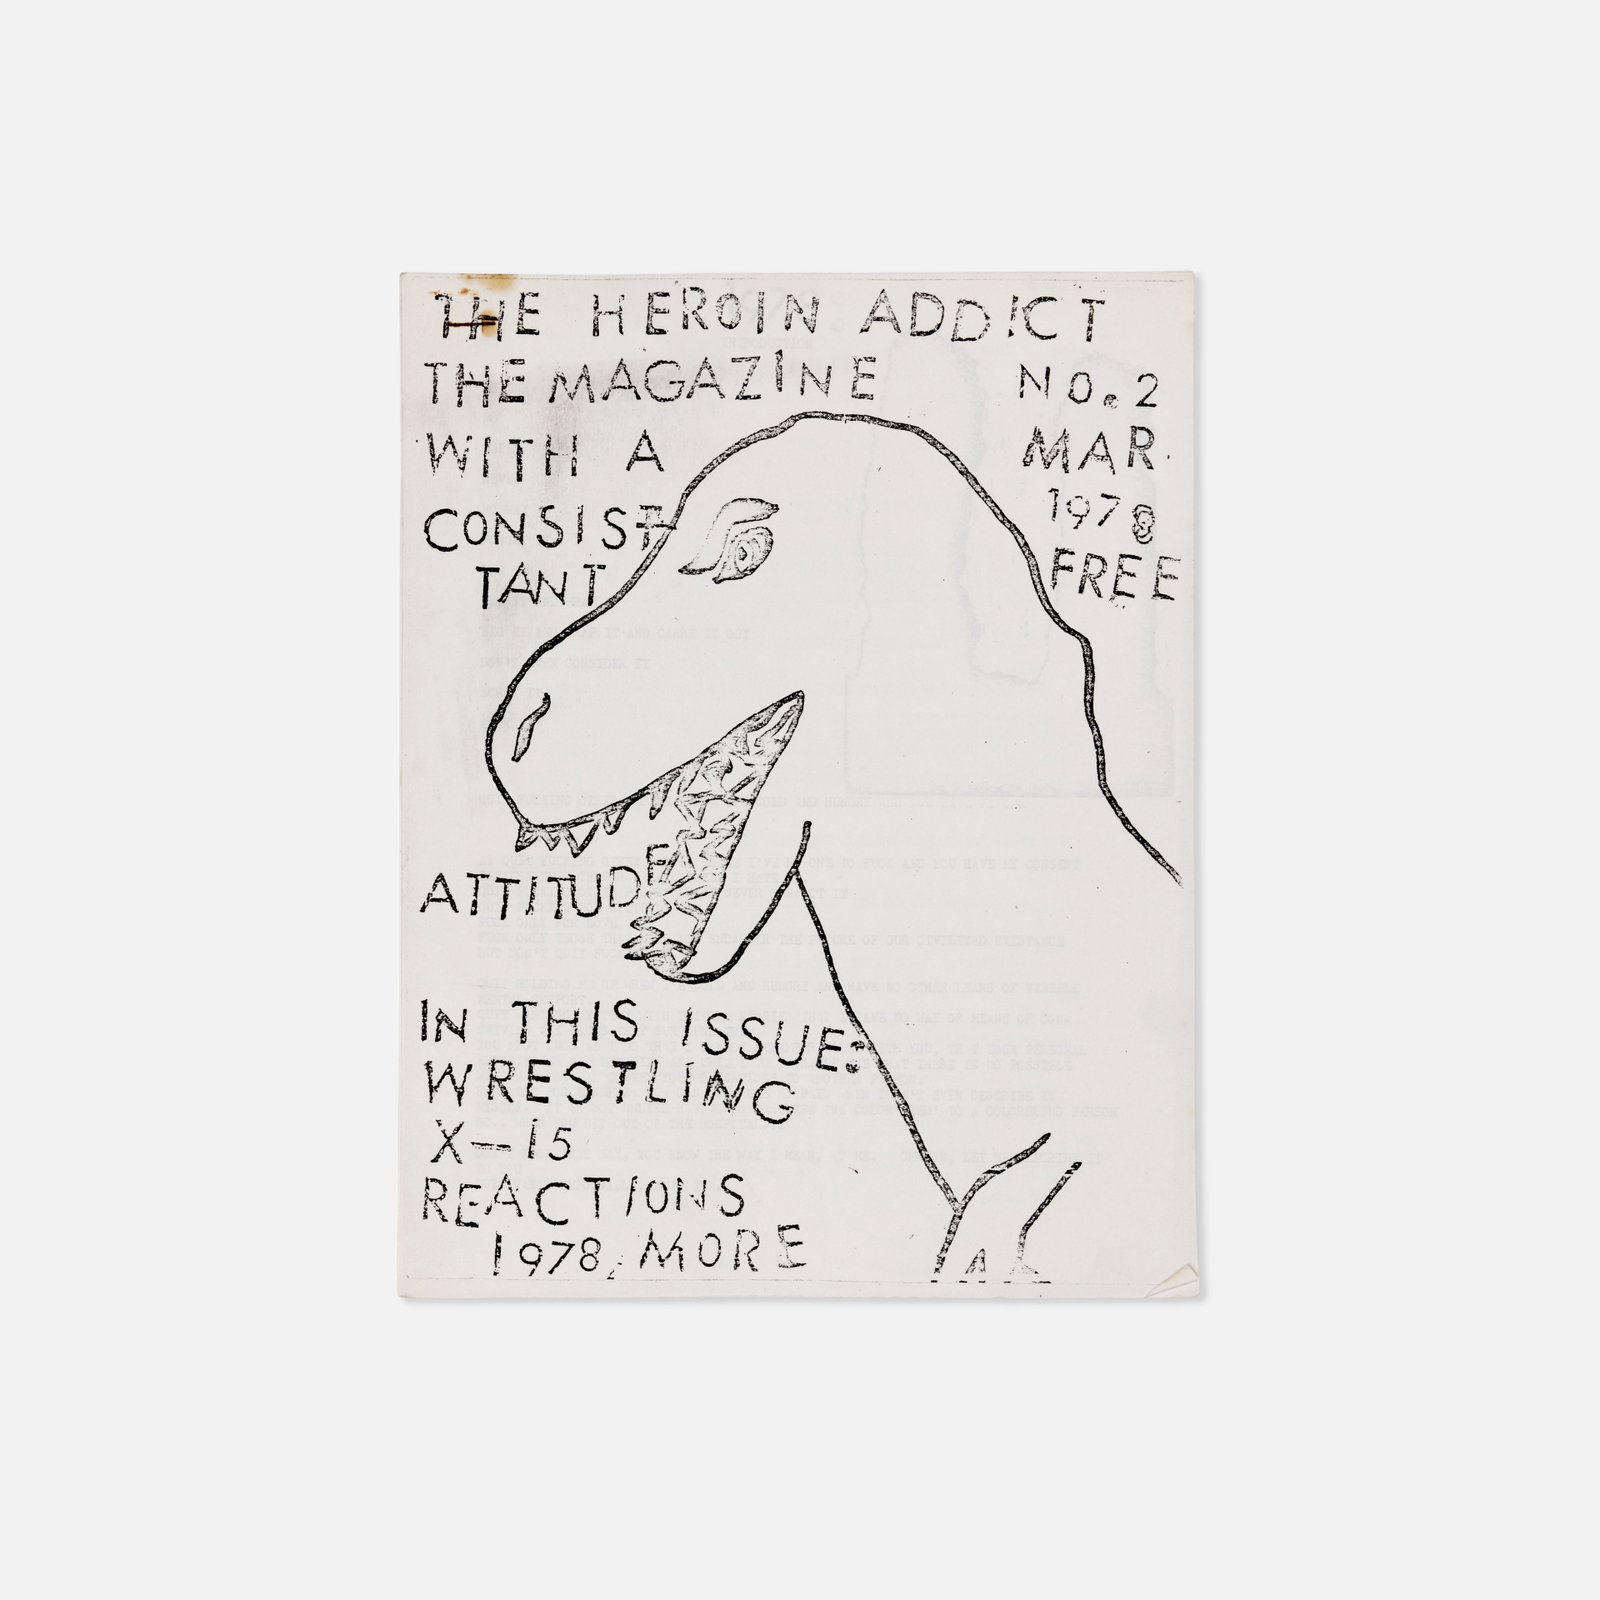 THE HEROIN ADDICT
THE MAGAZINE
NO. 2
WITH A
MAR.
1978
CONSIST
TANT
FREE
ATTITUDE
IN THIS ISSUE:
WRESTLING
X-15
REACTIONS
1978, MORE